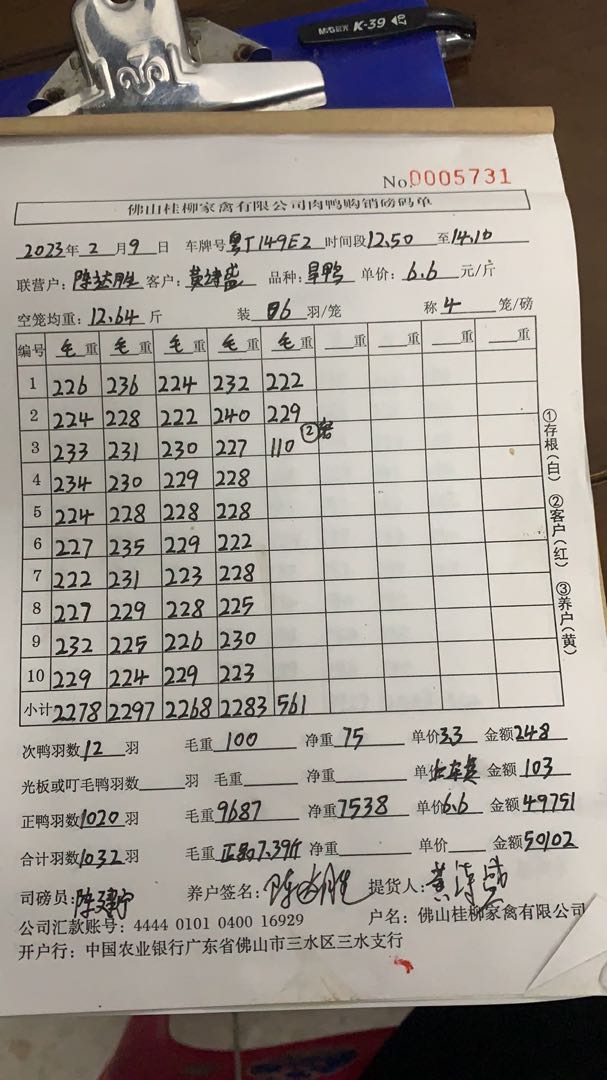 M&G K-39
No.0005731
佛山桂柳家禽有限公司肉鸭购销磅码单
2023年2月9日 车牌号粤J149E2时间段12.50至14.10
联营户: 客户: 品种:旱鸭 单价:6.6元/斤
空笼均重:12.64斤 装6羽/笼 称4笼/磅
编号 毛重 毛重 毛重 毛重 毛重 重 重 重 重
1 226 236 224 232 222
2 224 228 222 240 229
3 233 231 230 227 110 ②
4 234 230 229 228
5 224 228 228 228
6 227 235 229 222
7 222 231 223 228
8 227 229 228 225
9 232 225 226 230
10 229 224 229 223
小计 2278 2297 2268 2283 561
①存根(白) ②客户(红) ③养户(黄)
次鸭羽数12羽 毛重100 净重75 单价3.3 金额248
光板或叮毛鸭羽数 羽 毛重 净重 单价 金额103
正鸭羽数1020羽 毛重9687 净重7538 单价6.6 金额49751
合计羽数1032羽 毛重正品7.39斤 净重 单价 金额50102
司磅员: 养户签名: 提货人:
公司汇款账号: 4444 0101 0400 16929 户名: 佛山桂柳家禽有限公司
开户行: 中国农业银行广东省佛山市三水区三水支行